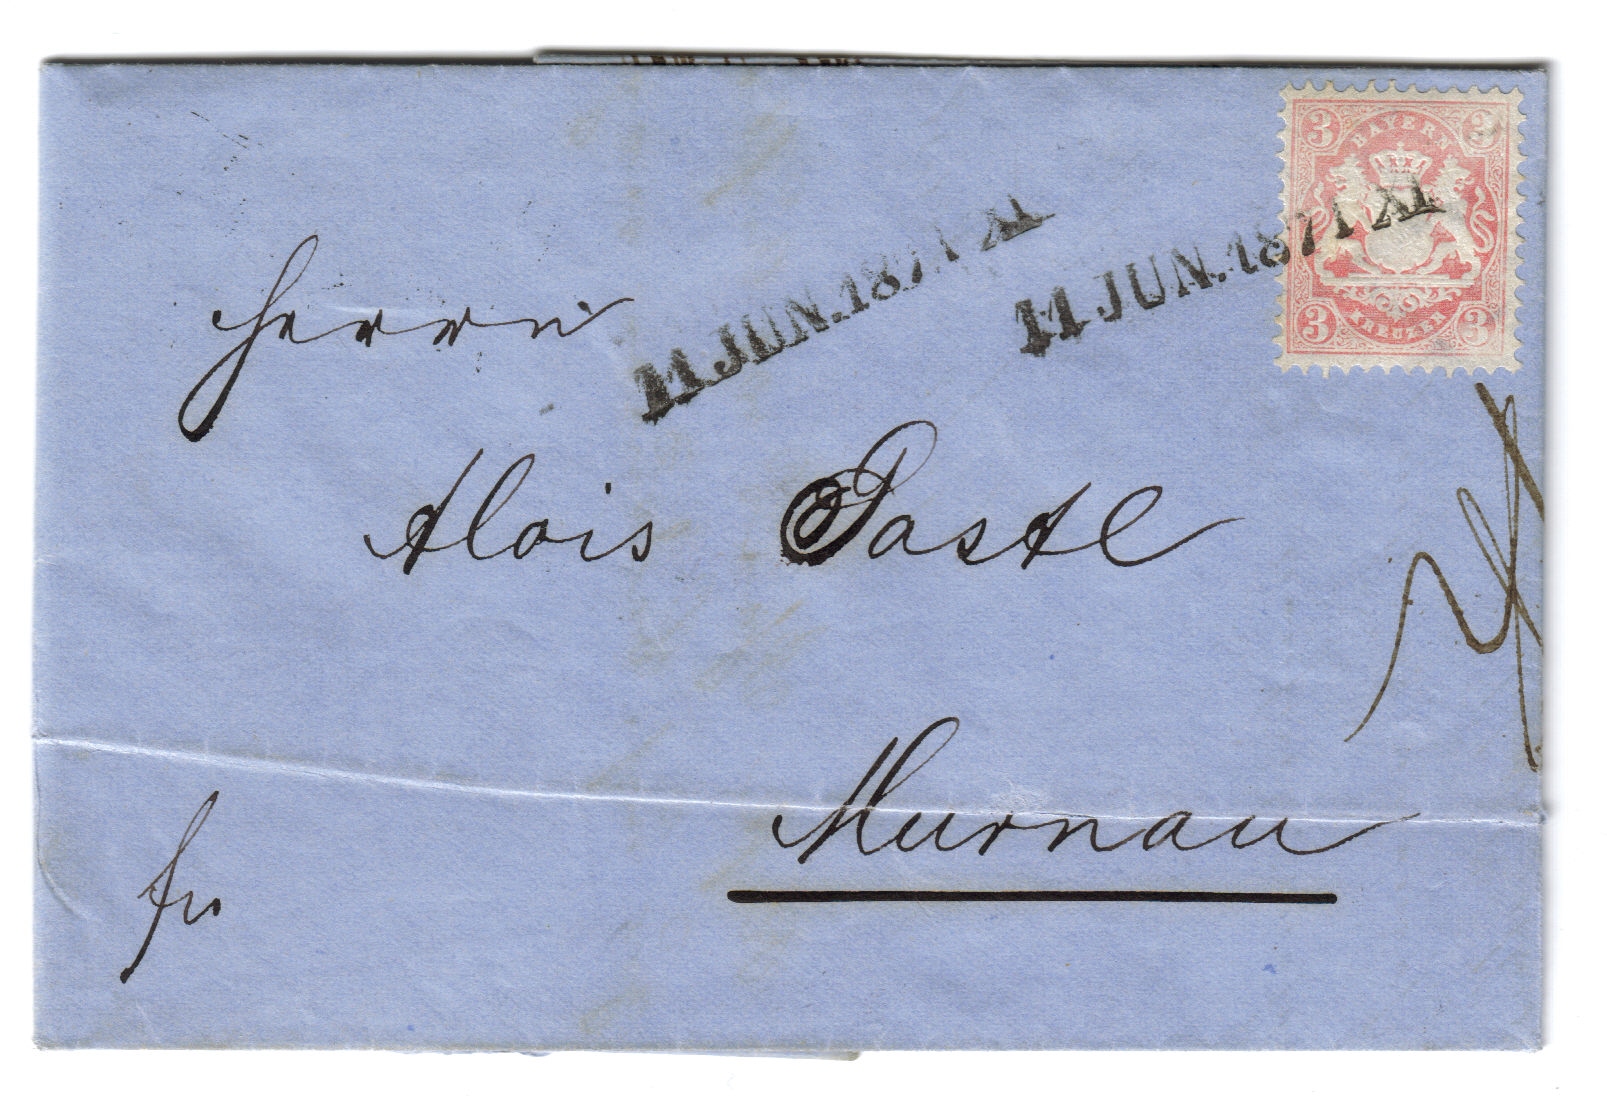 3 BAYERN 3
11 JUN. 1871 XI
11 JUN. 1871 XI
3 KREUZER 3
Herrn
Alois Pastl
Murnau
fr